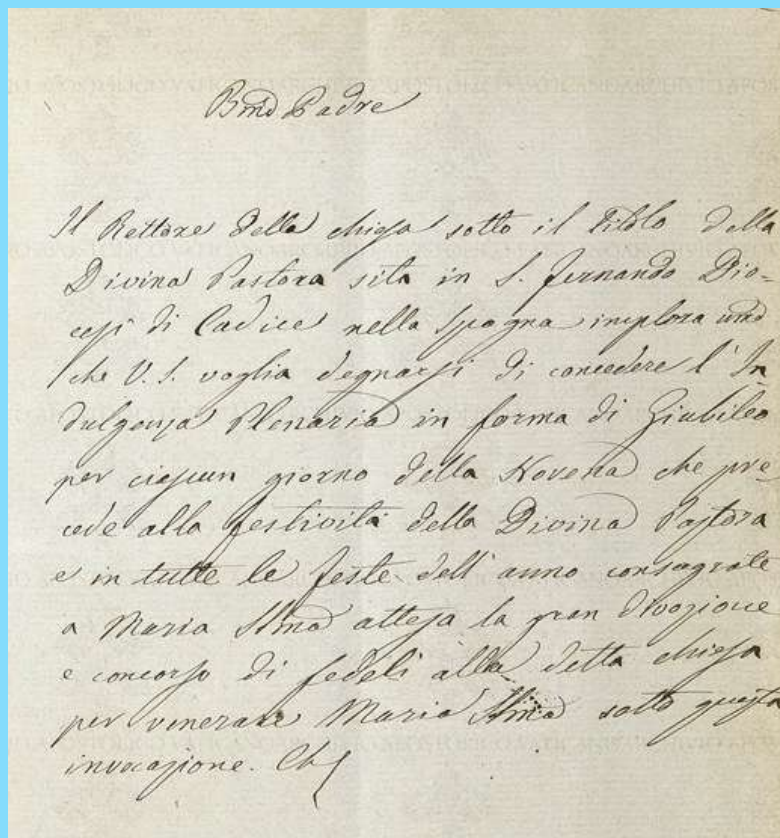 Bmo Padre
Il Rettore della chiesa sotto il titolo della
Divina Pastora sita in S. Fernando Dio=
cesi di Cadice nella Spagna implora
che V. S. voglia degnarsi di concedere l'In
dulgenza Plenaria in forma di Giubileo
per ciascun giorno della Novena che pre=
cede alla festività della Divina Pastora
e in tutte le feste dell'anno consagrate
a Maria SSma attesa la gran divozione
e concorso di fedeli alla detta chiesa
per venerare Maria SSma sotto questa
invocazione. Che